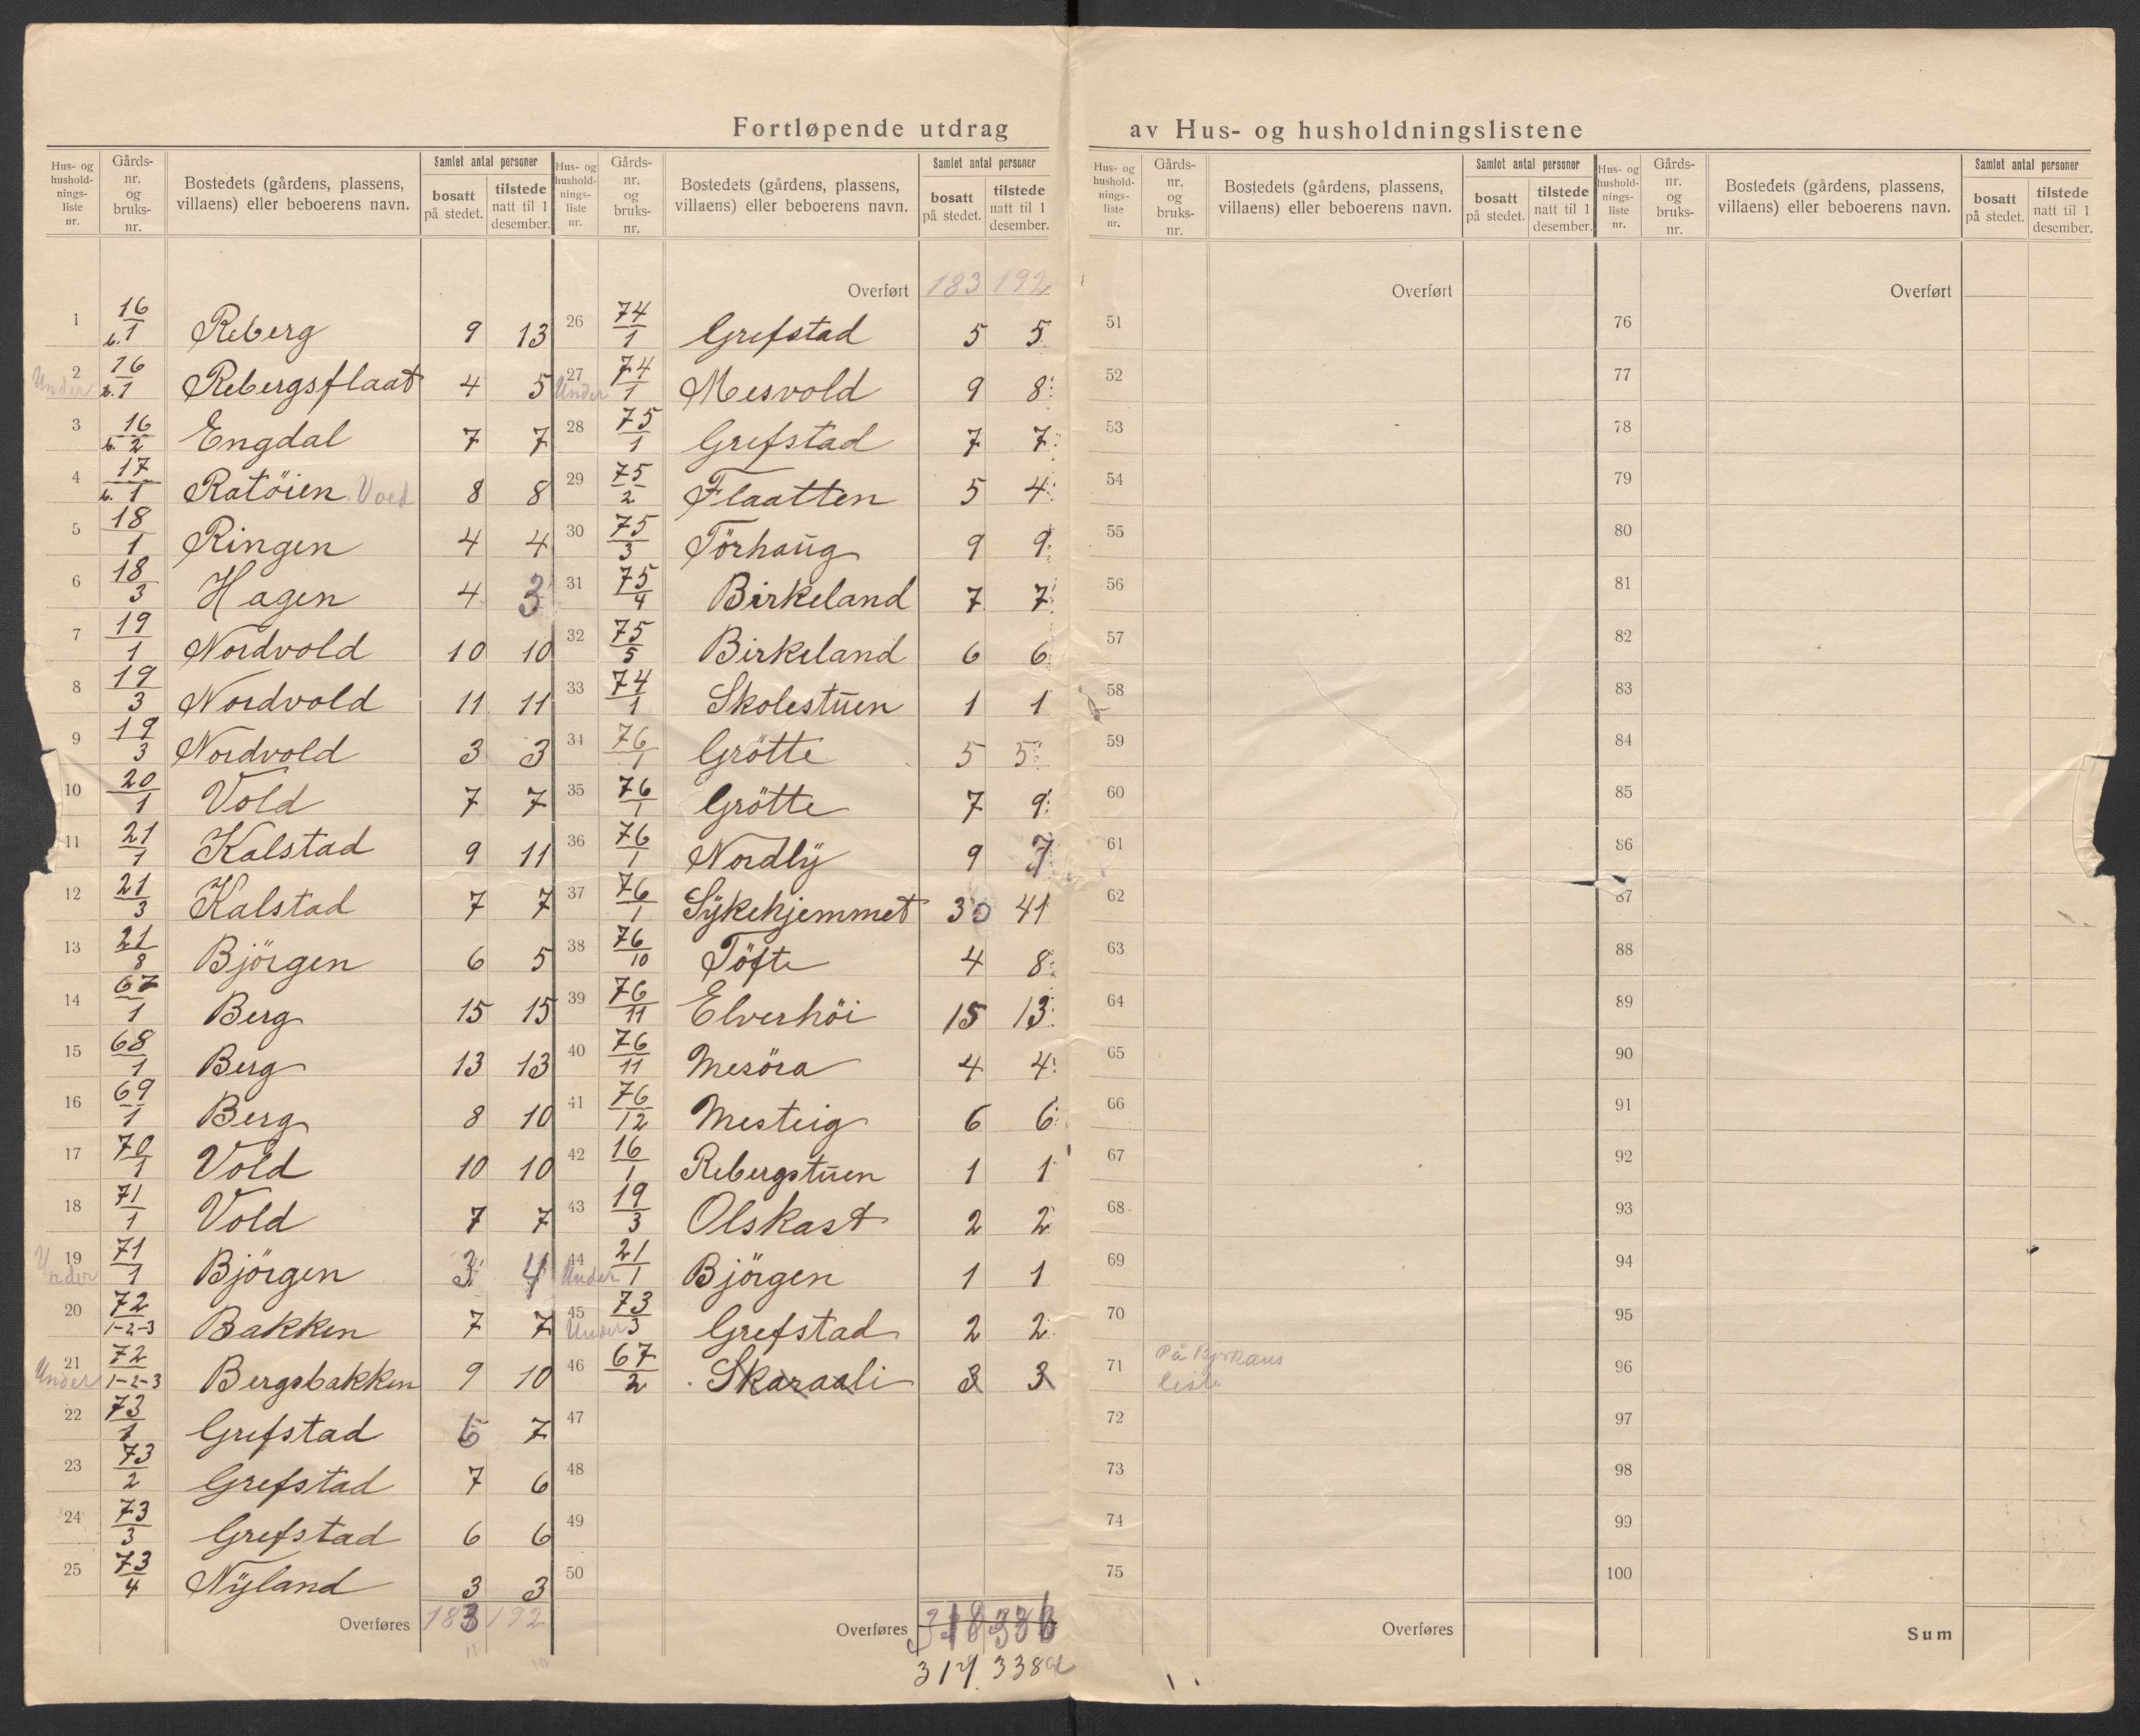 Fortløpende utdrag av Hus- og husholdningslistene
Hus- og husholdningsliste nr. | Gårds-nr. og bruks-nr. | Bostedets (gårdens, plassens, villaens) eller beboerens navn. | Samlet antal personer | bosatt på stedet. | tilstede natt til 1 desember.
1 16/b.1 Reberg 9 13
2 Under 16/b.1 Rebergsflaat 4 5
3 16/b.2 Engdal 7 7
4 17/b.1 Ratöien 8 8
5 18/1 Ringen 4 4
6 18/3 Hagen 4 3
7 19/1 Nordvold 10 10
8 19/3 Nordvold 11 11
9 19/3 Nordvold 3 3
10 20/1 Vold 7 7
11 21/1 Kalstad 9 11
12 21/3 Kalstad 7 7
13 21/8 Björgen 6 5
14 67/1 Berg 15 15
15 68/1 Berg 13 13
16 69/1 Berg 8 10
17 70/1 Vold 10 10
18 71/1 Vold 7 7
19 Under 71/1 Björgen 3 4
20 72/1-2-3 Bakken 7 7
21 Under 72/1-2-3 Bergsbakken 9 10
22 73/1 Grefstad 6 7
23 73/2 Grefstad 7 6
24 73/3 Grefstad 6 6
25 73/4 Nÿland 3 3
Overføres 183 192
Hus- og husholdningsliste nr. | Gårds-nr. og bruks-nr. | Bostedets (gårdens, plassens, villaens) eller beboerens navn. | Samlet antal personer | bosatt på stedet. | tilstede natt til 1 desember.
Overført 183 192
26 74/1 Grefstad 5 5
27 Under 74/1 Mesvold 9 8
28 75/1 Grefstad 7 7
29 75/2 Flaatten 5 4
30 75/3 Törhaug 9 9
31 75/4 Birkeland 7 7
32 75/5 Birkeland 6 6
33 74/1 Skolestuen 1 1
34 76/1 Grötte 5 5
35 76/1 Grötte 7 9
36 76/1 Nordlÿ 9 7
37 76/1 Sÿkehjemmet 30 41
38 76/10 Töfte 4 8
39 76/11 Elverhöi 15 13
40 76/11 Mesöra 4 4
41 76/12 Mesteig 6 6
42 16/1 Rebergstuen 1 1
43 19/3 Olskast 2 2
44 Under 21/1 Björgen 1 1
45 Under 73/3 Grefstad 2 2
46 67/2 Skaraali 3 3
47
48
49
50
Overføres 318 336
317. 338
Hus- og husholdningsliste nr. | Gårds-nr. og bruks-nr. | Bostedets (gårdens, plassens, villaens) eller beboerens navn. | Samlet antal personer | bosatt på stedet. | tilstede natt til 1 desember.
Overført
51
52
53
54
55
56
57
58
59
60
61
62
63
64
65
66
67
68
69
70
71 På liste
72
73
74
75
Overføres
Hus- og husholdningsliste nr. | Gårds-nr. og bruks-nr. | Bostedets (gårdens, plassens, villaens) eller beboerens navn. | Samlet antal personer | bosatt på stedet. | tilstede natt til 1 desember.
Overført
76
77
78
79
80
81
82
83
84
85
86
87
88
89
90
91
92
93
94
95
96
97
98
99
100
Sum